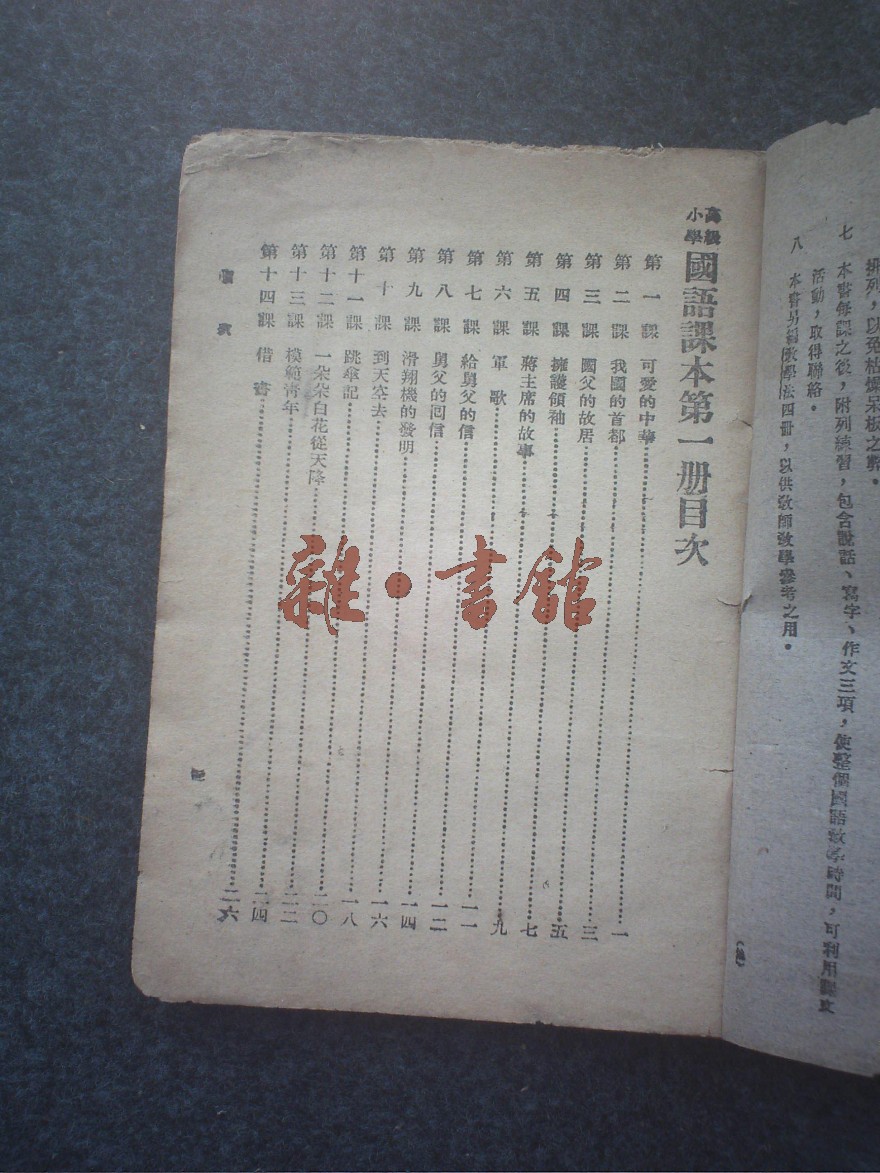 排列，以免枯燥呆板之弊。
七　本書每課之後，附列練習，包含說話、寫字、作文三項，使整個國語教學時間，可利用課文
活動，取得聯絡。
八　本書另編教學法四冊，以供教師教學參考之用。
高級小學 國語課本第一册目次
第一課　可愛的中華……一
第二課　我國的首都……三
第三課　國父的故居……五
第四課　擁護領袖……七
第五課　蔣主席的故事……九
第六課　軍歌……一一
第七課　給舅父的信……一二
第八課　舅父的回信……一四
第九課　滑翔機的發明……一六
第十課　到天空去……一八
第十一課　跳傘記……二〇
第十二課　一朵朵白花從天降……二二
第十三課　模範青年……二四
第十四課　借書……二六
雜·書館